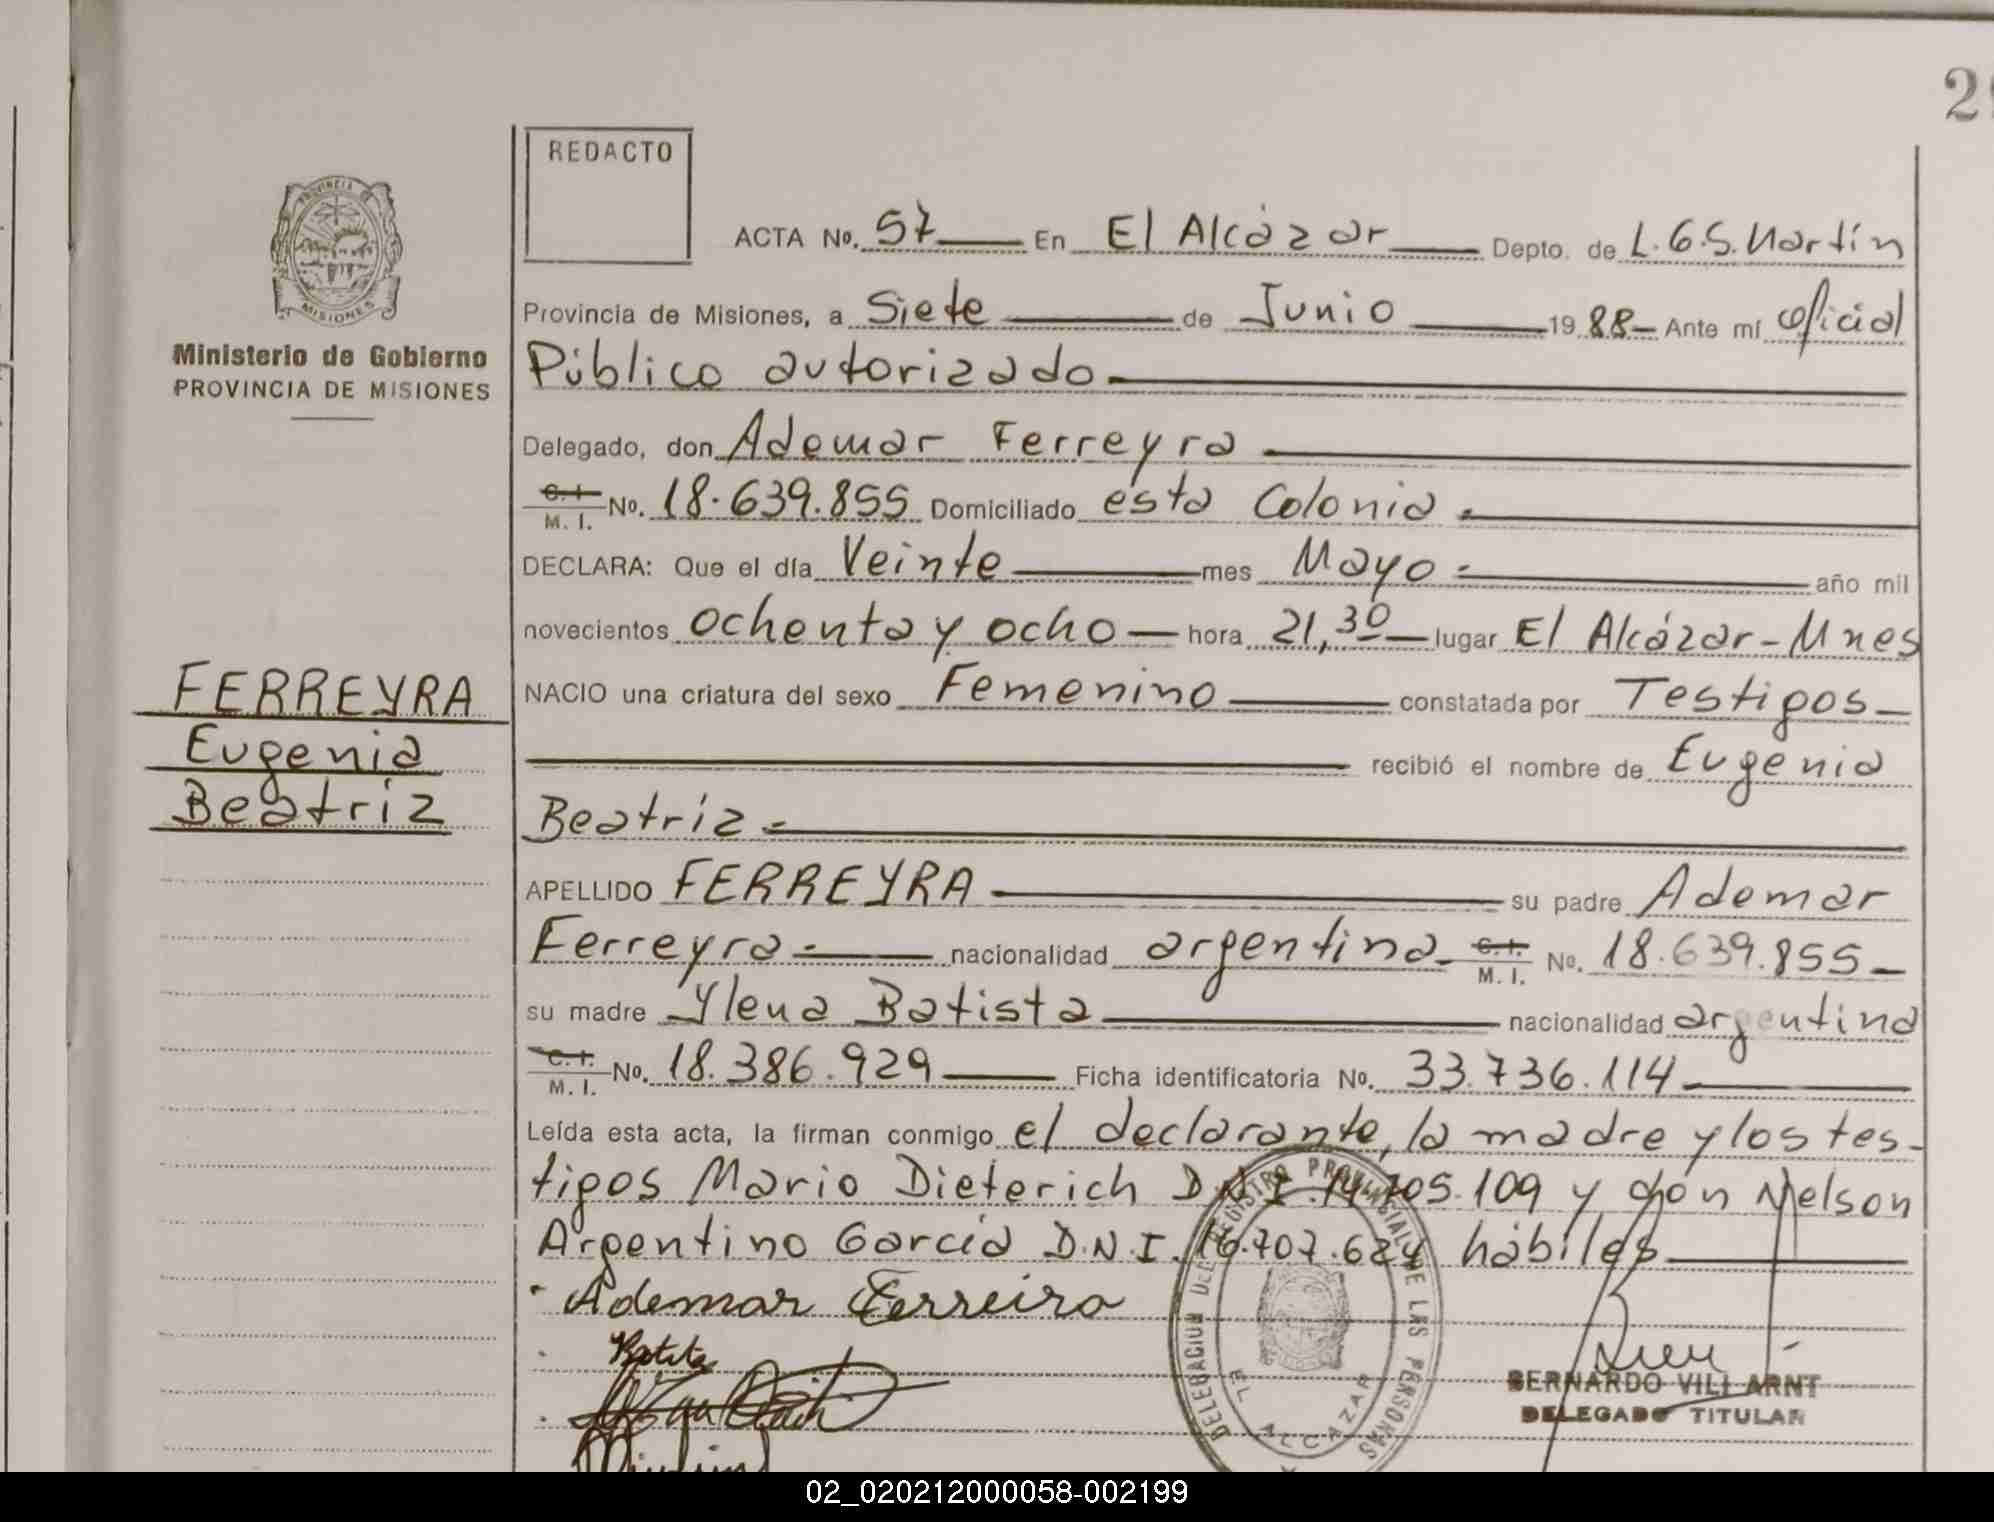 2
REDACTO
PROVINCIA DE
MISIONES
Ministerio de Gobierno
PROVINCIA DE MISIONES
ACTA No. 57 En El Alcázar Depto. de L.G.S. Martín
Provincia de Misiones, a Siete de Junio 1988 Ante mí oficial
Público autorizado
Delegado, don Ademar Ferreyra
C. I. M. I. No. 18.639.855 Domiciliado esta Colonia.
DECLARA: Que el día Veinte mes Mayo año mil
novecientos ochenta y ocho hora 21,30 lugar El Alcázar - Mnes
FERREYRA
Eugenia
Beatríz
NACIO una criatura del sexo Femenino constatada por Testigos
recibió el nombre de Eugenia
Beatríz
APELLIDO FERREYRA su padre Ademar
Ferreyra nacionalidad argentina C. I. M. I. No. 18.639.855
su madre Ylena Batista nacionalidad argentina
C. I. M. I. No. 18.386.929 Ficha identificatoria No. 33.736.114
Leída esta acta, la firman conmigo el declarante, la madre y los tes-
tigos Mario Dieterich D.N.I. 705.109 y don Nelson
Argentino García D.N.I. 16.707.624 hábiles
Ademar Ferreira
DELEGACION DEL REGISTRO PROVINCIAL DE LAS PERSONAS
EL ALCAZAR
BERNARDO VILLARNT
DELEGADO TITULAR
02_020212000058-002199